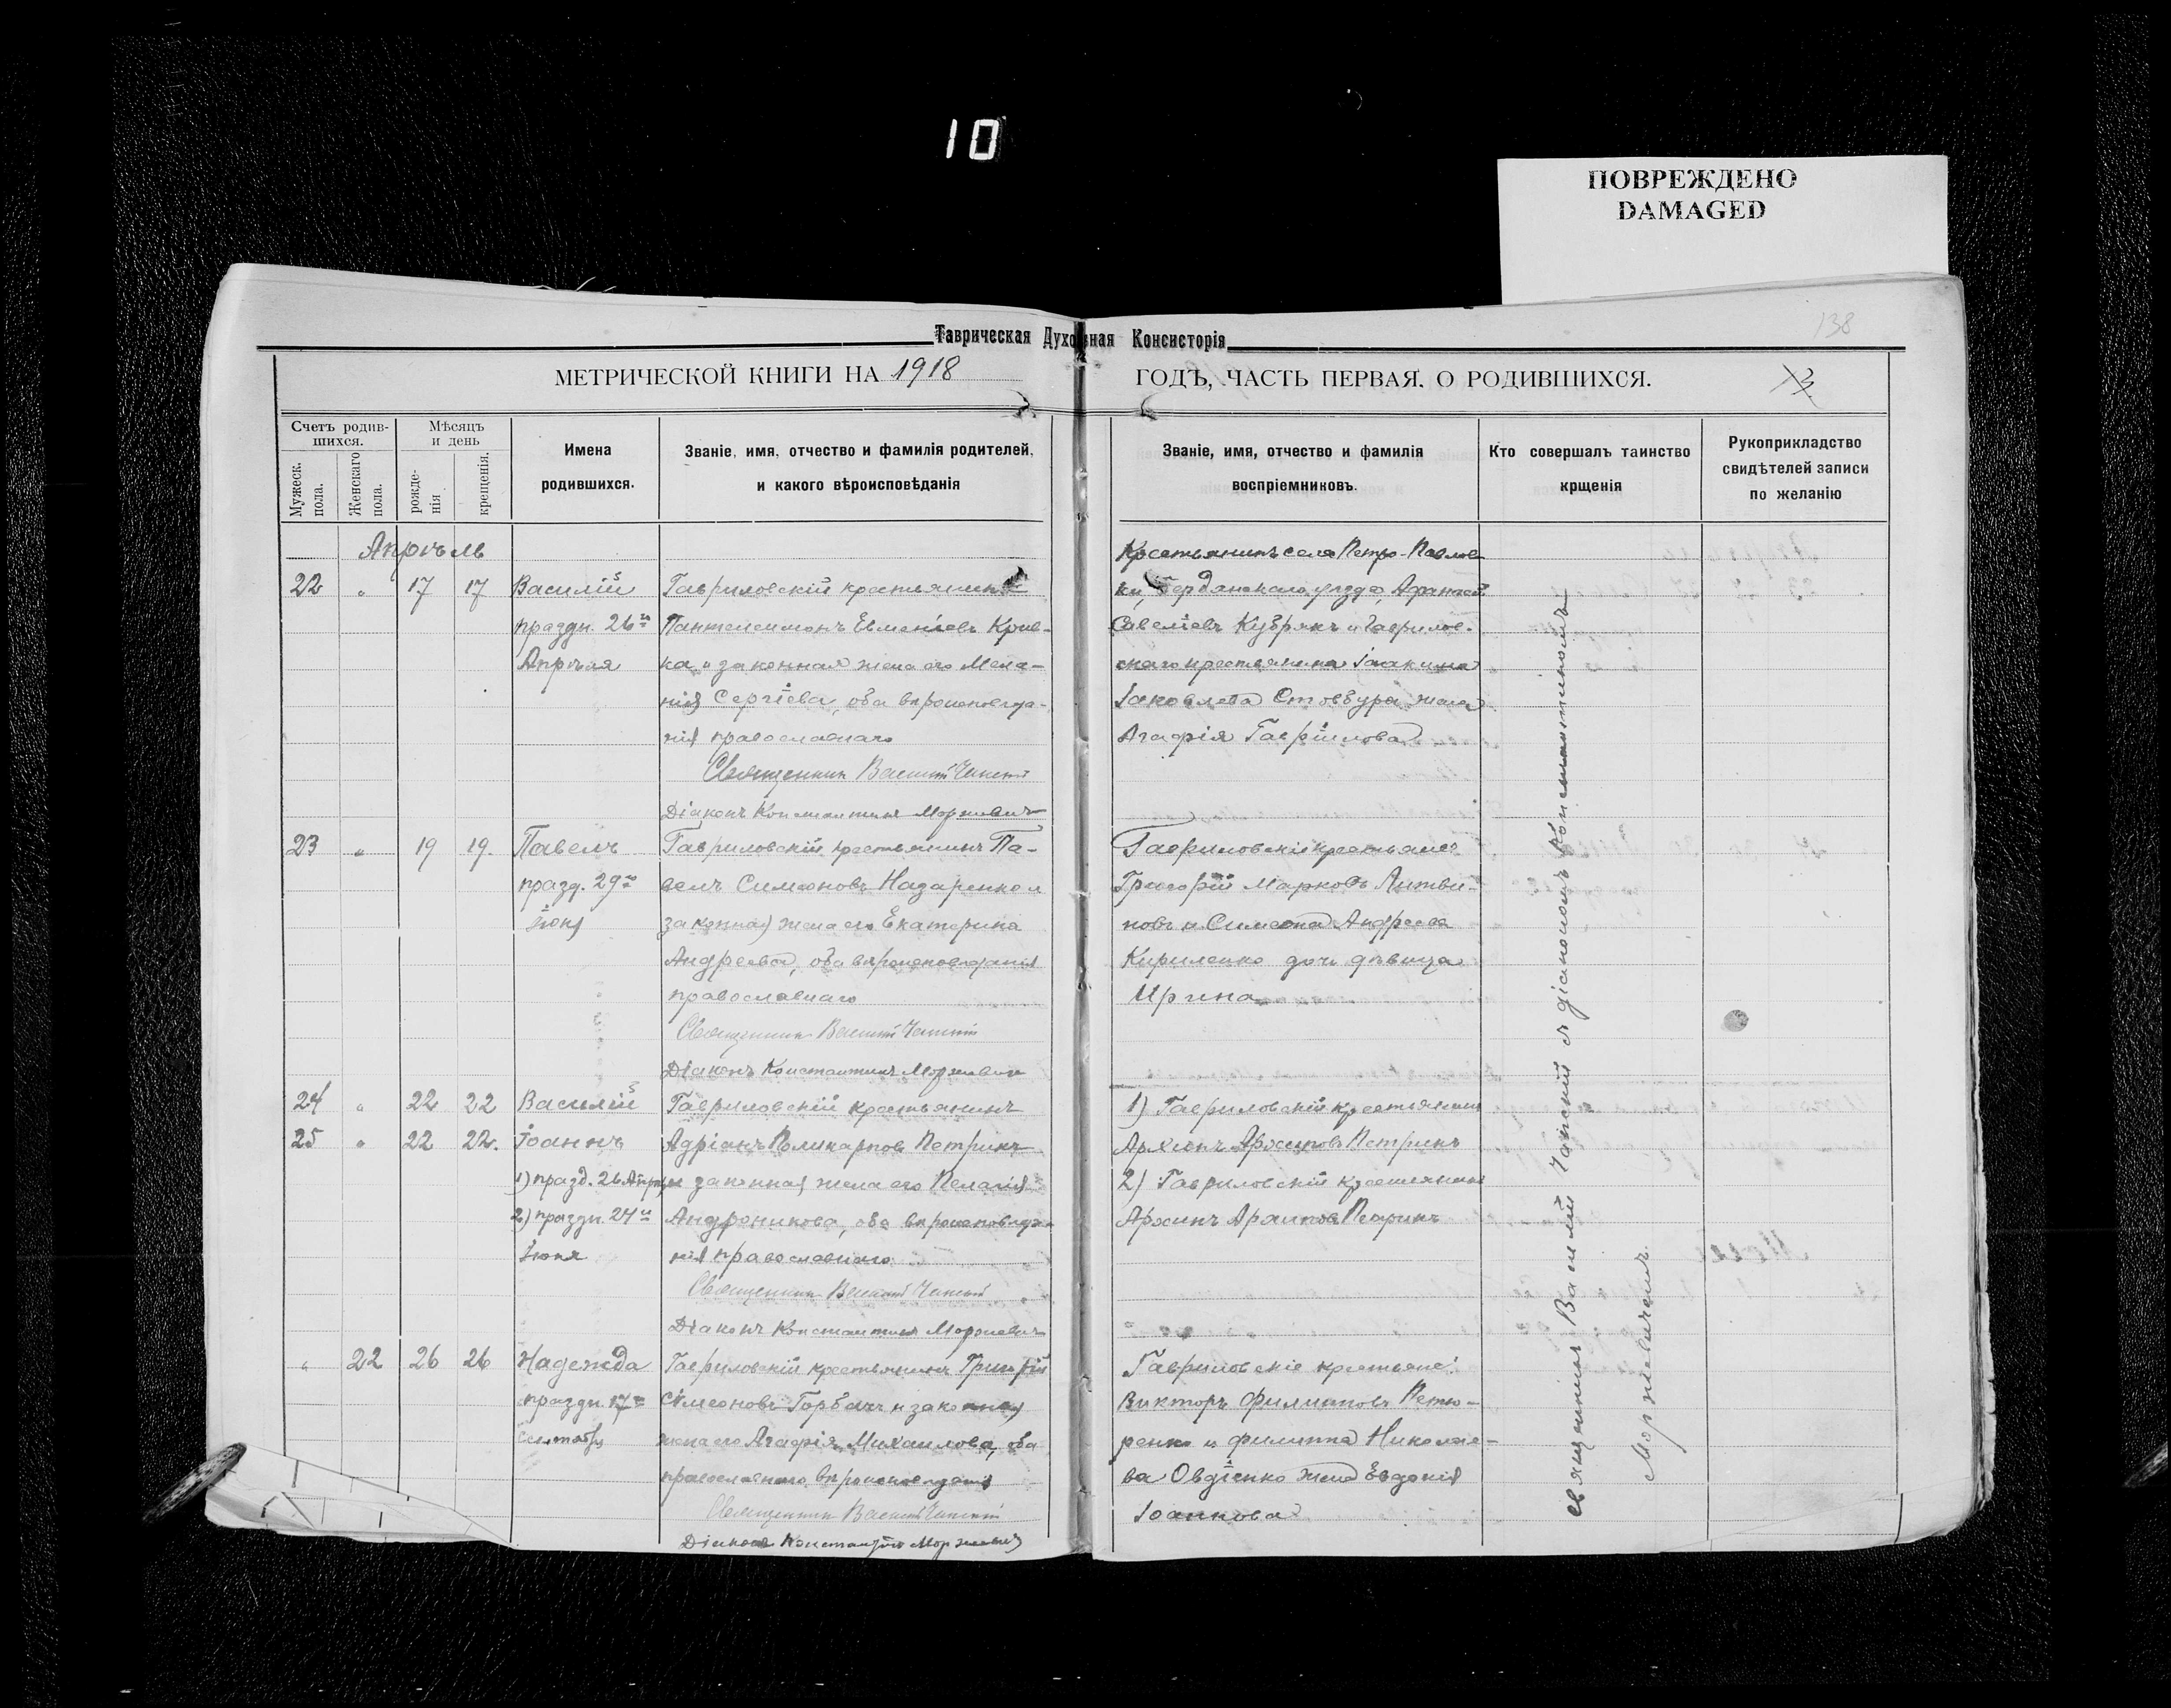 10
ПОВРЕЖДЕНО
DAMAGED
138
Таврическая Духовная Консисторія
МЕТРИЧЕСКОЙ КНИГИ НА 1918
ГОДЪ, ЧАСТЬ ПЕРВАЯ, О РОДИВШИХСЯ.
Счетъ родив-
шихся.
Мужеск.
пола.
Женскаго
пола.
Мѣсяцъ
и день
рожде-
нія
крещенія.
Имена
родившихся.
Званіе, имя, отчество и фамилія родителей,
и какого вѣроисповѣданія
Званіе, имя, отчество и фамилія
воспріемниковъ.
Кто совершалъ таинство
крщенія
Рукоприкладство
свидѣтелей записи
по желанію
Апрѣль
22 " 17 17 Василій Гавриловскій крестьянинъ
праздн. 26го Пантелеимонъ Евменіевъ Крив-
Апрѣля ка и законная жена его Мела-
нія Сергіева, оба вѣроисповѣда-
нія православнаго
Священникъ Василій Чапскій
Діаконъ Константинъ Моржевичъ
Крестьянинъ села Петро-Павлов
ки, Бердянскаго уѣзда,
Савеліевъ и Гаврилов-
скаго крестьянина Іоакима
Іаковлева Стовбура жена
Агафія Гавріилова
23 " 19 19. Павелъ Гавриловскій крестьянинъ Па-
празд. 29го велъ Симеоновъ Назаренко и
Іюня законная жена его Екатерина
Андреева, оба вѣроисповѣданія
православнаго
Священникъ Василій Чапскій
Діаконъ Константинъ Моржевичъ
Гавриловскіе крестьяне
Григорій Марковъ Литви-
новъ и Симеона Андреева
Кириленко дочь дѣвица
Ирина
24 " 22 22 Василій Гавриловскій крестьянинъ
25 " 22 22. Іоаннъ Адріанъ Поликарповъ Петрикъ
1) празд. 26 Апрѣля и законная жена его Пелагія
2) праздн. 24го Андроникова, оба вѣроисповѣда-
Іюня нія православнаго
Священникъ Василій Чапскій
Діаконъ Константинъ Моржевичъ
1) Гавриловскій крестьянинъ
Архиповъ Петрикъ
2) Гавриловскій крестьянинъ
Архипъ Петрикъ
" 22 26 26 Надежда Гавриловскій крестьянинъ Григорій
праздн. 17го Симеоновъ Горбачъ и законная
Сентября жена его Агафія Михаилова, оба
православнаго вѣроисповѣданія
Священникъ Василій Чапскій
Діаконъ Константинъ Моржевичъ
Гавриловскіе крестьяне:
Викторъ Филиповъ Петю-
ренко и Филиппа Николае-
ва Овдіенко жена Евдокія
Іоаннова
Священникъ Василій Чапскій съ діакономъ Константиномъ
Моржевичемъ.